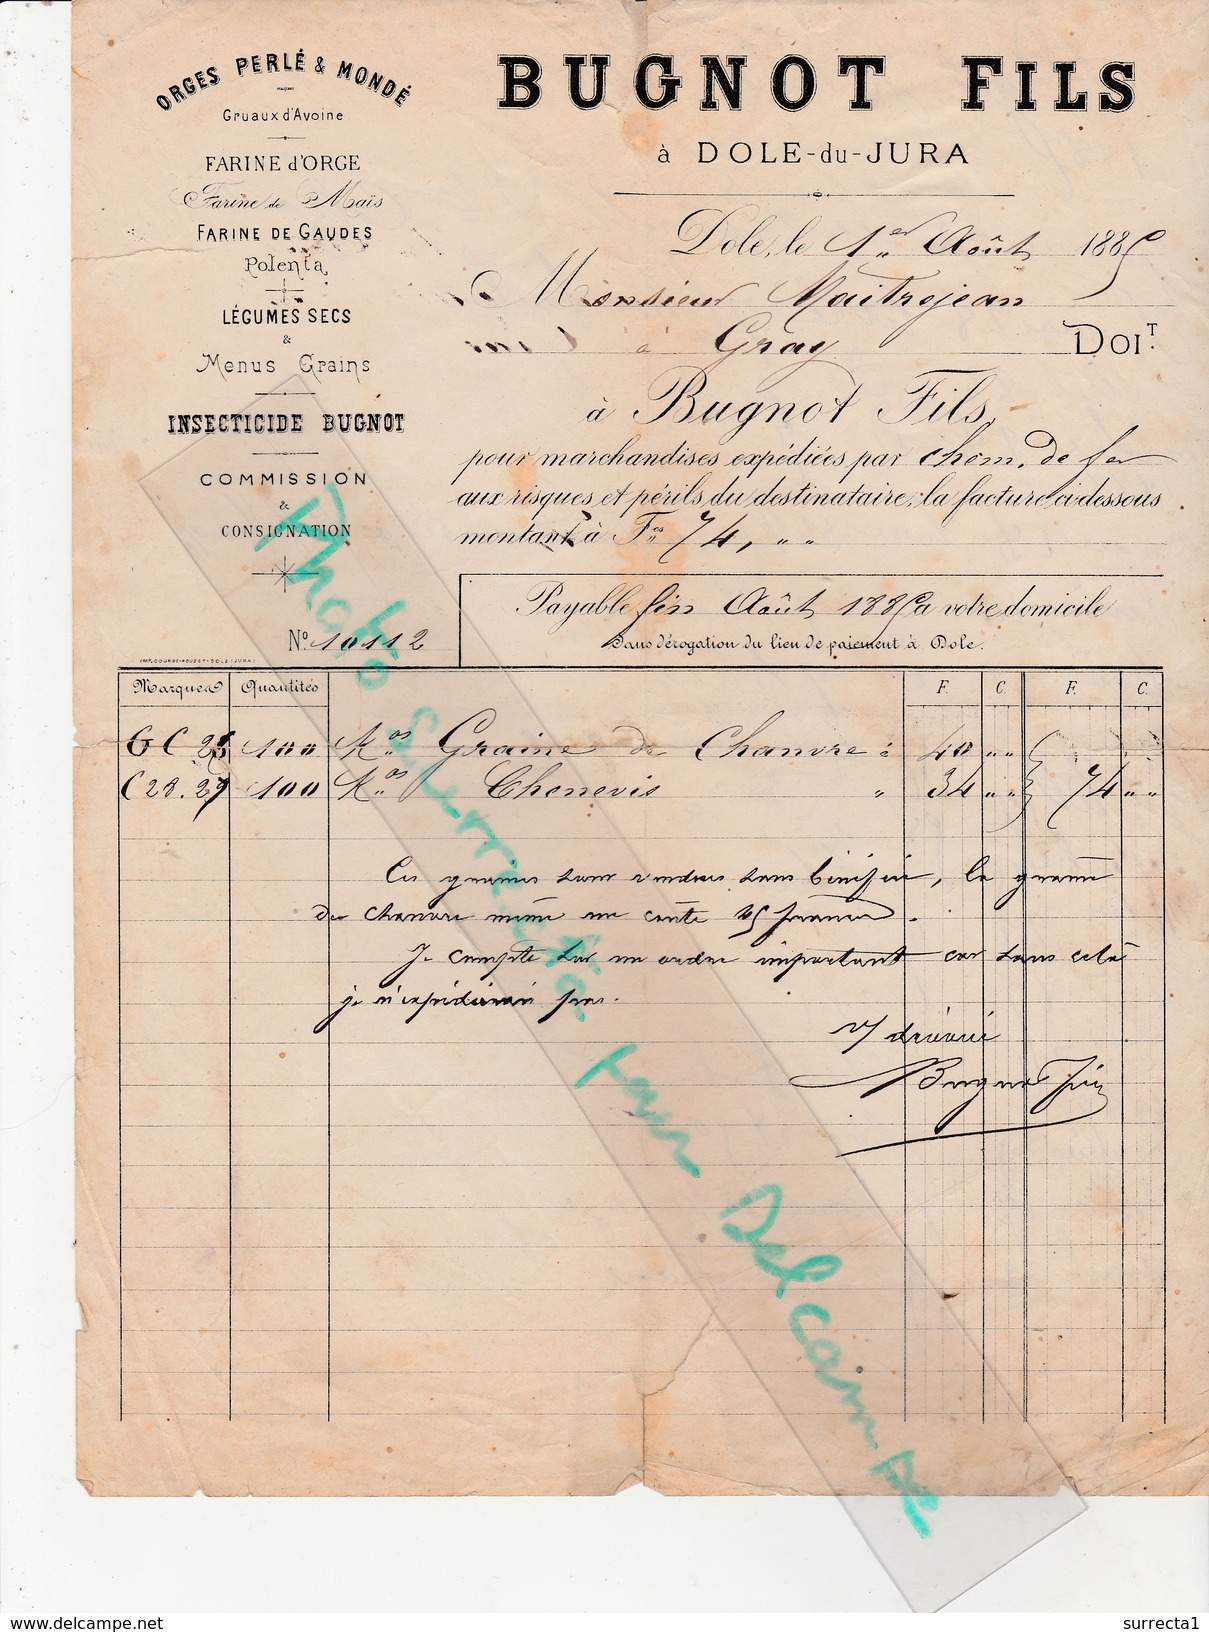 ORGES PERLÉ & MONDÉ
Gruaux d'Avoine
FARINE d'ORGE
Farine de Maïs
FARINE DE GAUDES
Polenta
LÉGUMES SECS
&
Menus Grains
INSECTICIDE BUGNOT
COMMISSION
&
CONSIGNATION
N° 10112
IMP. COURBE-ROUZET-DOLE (JURA)
BUGNOT FILS
à DOLE-du-JURA
Dole, le 1er Août 1885
Monsieur Maitrejean
à Gray DOIT.
à Bugnot Fils,
pour marchandises expédiées par chem. de fer
aux risques et périls du destinataire, la facture ci-dessous
montant à Fcs 74, " "
Payable fin Août 1885 à votre domicile
Sans dérogation du lieu de paiement à Dole.
Marques Quantités F. C. F. C.
GC 25 100 Kos Graine de Chanvre à 40 " "
C 28.27 100 Kos Chenevis " 34 " " 74 " "
Ces graines sont vendues sans bénéfice, la graine
de chanvre même me coûte 45 francs.
Je compte sur un ordre important car sans cela
je n'expédierais pas.
V/ dévoué
Bugnot Fils
Photo surrecta1 pour Delcampe
delcampe.net
surrecta1